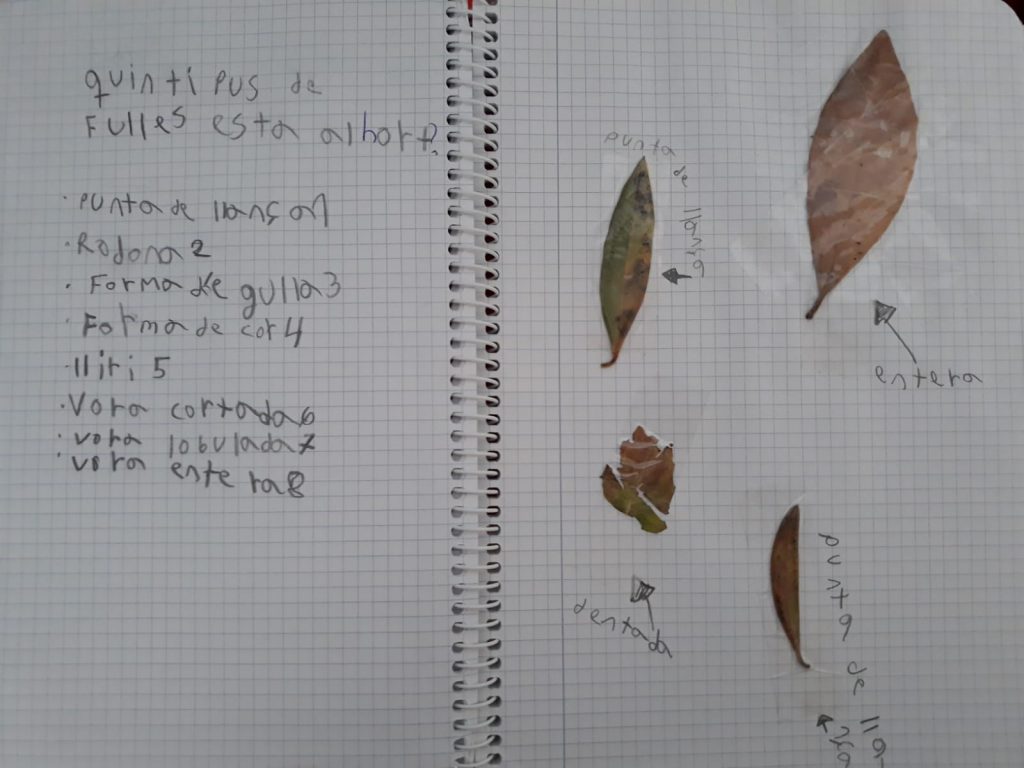 quin ti pus de
Fulles esta alhort?
· punta de llança 1
· Rodona 2
· Forma de gulla 3
· Forma de cor 4
· lliri 5
· Vora cortada 6
· vora lobulada 7
· vora entera 8
punta de llança
entera
dentada
punta de llança